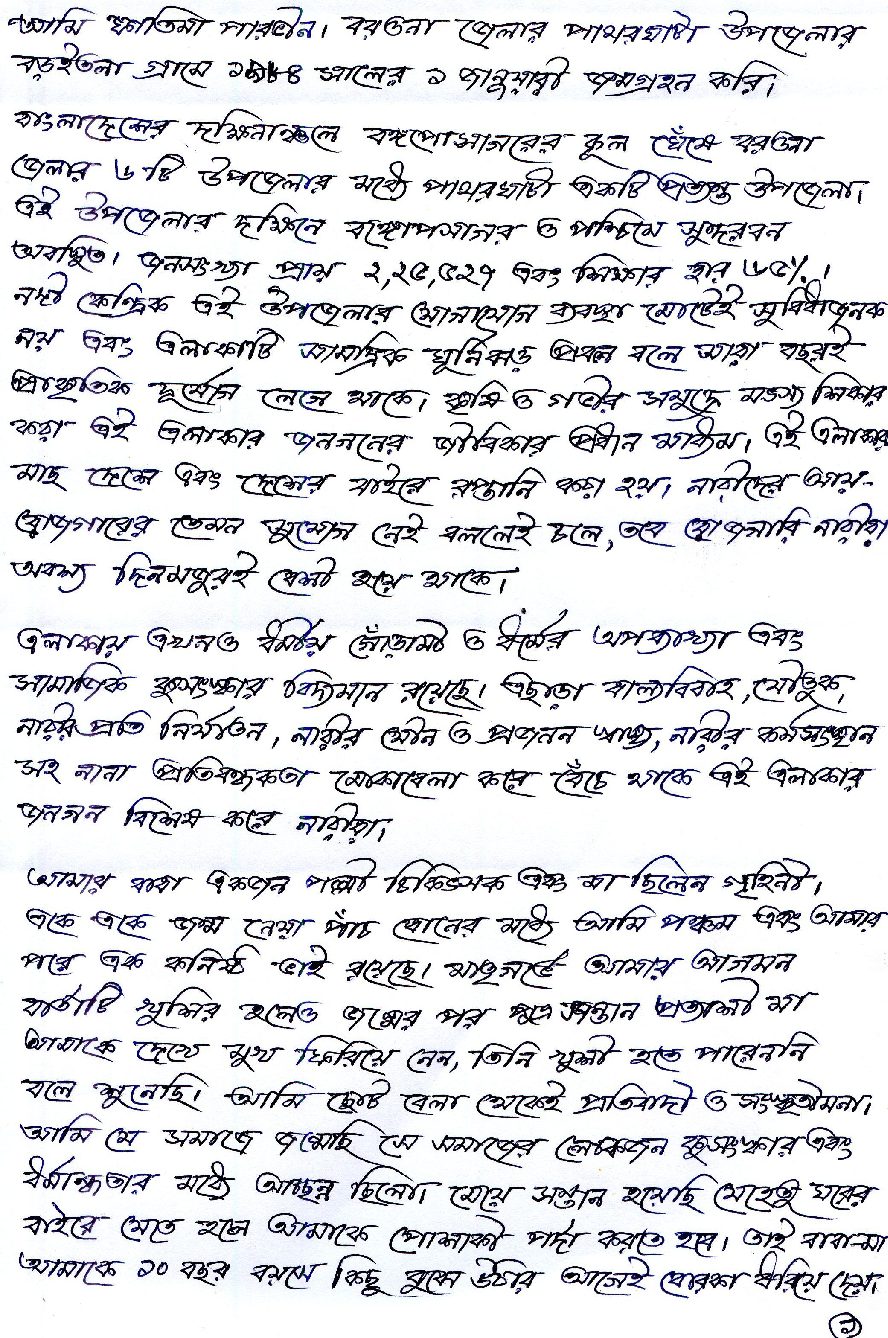 আমি ফাতিমা পারভীন। বরগুনা জেলার পাথরঘাটা উপজেলার
বড়ইতলা গ্রামে সালের ১ জানুয়ারী জন্মগ্রহন করি।
বাংলাদেশের দক্ষিনাঞ্চলে বঙ্গপোসাগরের কূল ঘেঁষে বরগুনা
জেলার ৬ টি উপজেলার মধ্যে পাথরঘাটা একটি প্রত্যন্ত উপজেলা।
এই উপজেলার দক্ষিনে বঙ্গোপসাগর ও পশ্চিমে সুন্দরবন
অবস্থিত। জনসংখ্যা প্রায় ২,২৫,৫২৭ এবং শিক্ষার হার ৬৫%।
নদী কেন্দ্রিক এই উপজেলার যোগাযোগ ব্যবস্থা মোটেই সুবিধাজনক
নয় এবং এলাকাটি সামুদ্রিক ঘূর্নিঝড় প্রবন বলে সারা বছরই
প্রাকৃতিক দূর্যোগ লেগে থাকে। কৃষি ও গভীর সমুদ্রে মৎস্য শিকার
করা এই এলাকার জনগনের জীবিকার প্রধান মাধ্যম। এই এলাকার
মাছ দেশে এবং দেশের বাইরে রপ্তানি করা হয়। নারীদের আয়-
রোজগারের তেমন সুযোগ নেই বললেই চলে, তবে রোজগারি নারীরা
অবশ্য দিনমজুরই বেশী হয়ে থাকে।
এলাকায় এখনও ধর্মীয় গোঁড়ামী ও ধর্মের অপব্যাখ্যা এবং
সামাজিক কুসংস্কার বিদ্যমান রয়েছে। এছাড়া বাল্যবিবাহ, যৌতুক,
নারীর প্রতি নির্যাতন, নারীর যৌন ও প্রজনন স্বাস্থ্য, নারীর কর্মসংস্থান
সহ নানা প্রতিবন্ধকতা মোকাবেলা করে বেঁচে থাকে এই এলাকার
জনগন বিশেষ করে নারীরা।
আমার বাবা একজন পল্লী চিকিৎসক এবং মা ছিলেন গৃহিনী।
একে একে জন্ম নেয়া পাঁচ বোনের মধ্যে আমি পঞ্চম এবং আমার
পরে এক কনিষ্ঠ ভাই রয়েছে। মাতৃগর্ভে আমার আগমন
বার্তাটি খুশির হলেও জন্মের পর পুত্র সন্তান প্রত্যাশী মা
আমাকে দেখে মুখ ফিরিয়ে নেন, তিনি খুশী হতে পারেননি
বলে শুনেছি। আমি ছোট বেলা থেকেই প্রতিবাদী ও সংস্কৃতিমনা।
আমি যে সমাজে জন্মেছি সে সমাজের লোকজন কুসংস্কার এবং
ধর্মান্ধতার মধ্যে আচ্ছন্ন ছিলো। মেয়ে সন্তান হয়েছি যেহেতু ঘরের
বাইরে যেতে হলে আমাকে পোশাকী পর্দা করতে হবে। তাই বাবা-মা
আমাকে ১০ বছর বয়সে কিছু বুঝে উঠার আগেই বোরকা ধরিয়ে দেয়।
১